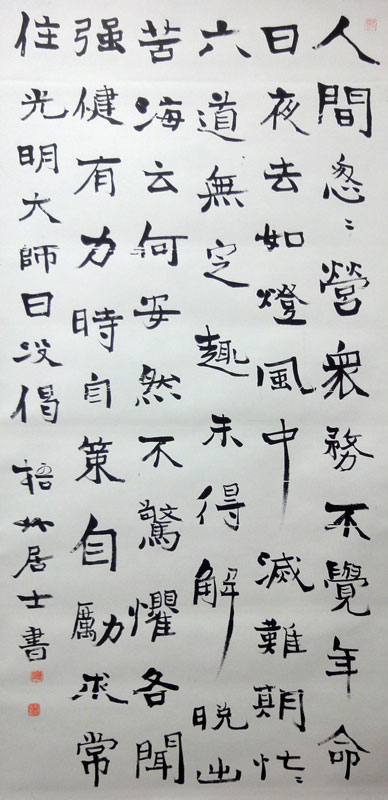 人間怱〻營衆務不覺年命
日夜去如燈風中滅難期忙〻
六道無定趣未得解脱出
苦海云何安然不驚懼各聞
强健有力時自策自勵求常
住光明大師日没偈 梧竹居士書